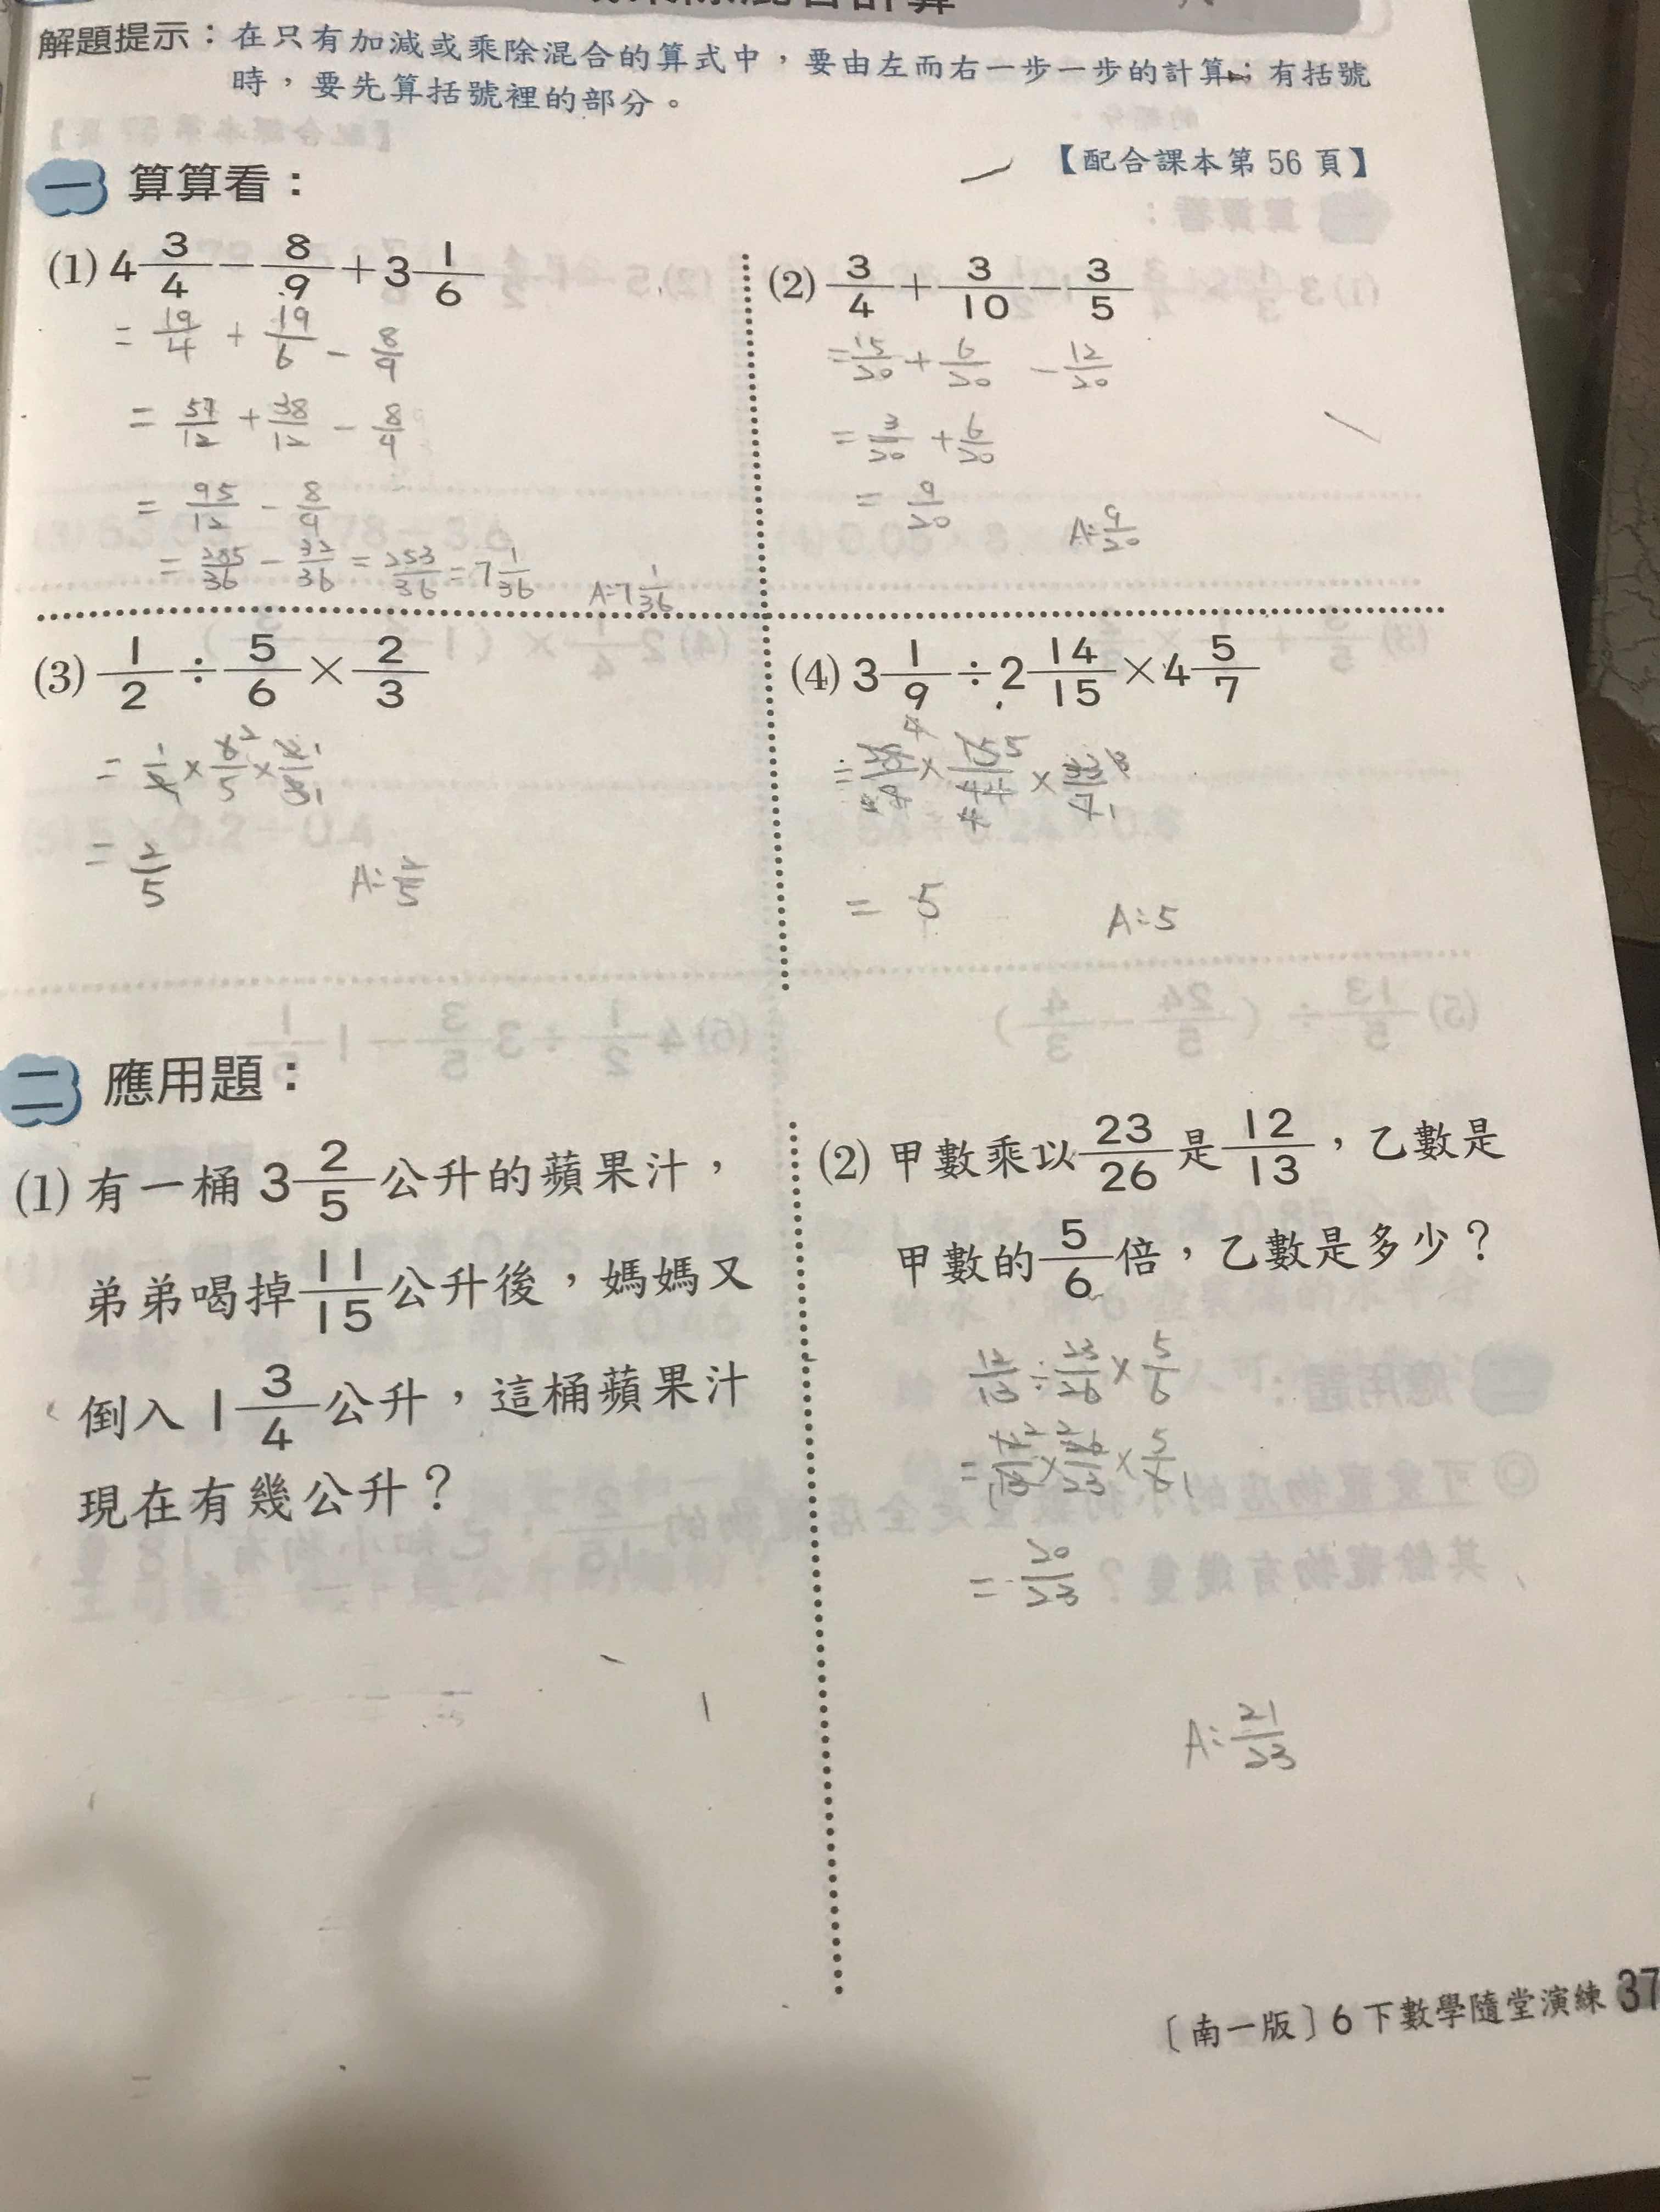 解題提示：在只有加減或乘除混合的算式中，要由左而右一步一步的計算；有括號
時，要先算括號裡的部分。
【配合課本第 56 頁】
一 算算看：
(1) 4 3/4 － 8/9 ＋ 3 1/6
= 19/4 + 19/6 - 8/9
= 57/12 + 38/12 - 8/9
= 95/12 - 8/9
= 285/36 - 32/36 = 253/36 = 7 1/36
A: 7 1/36
(2) 3/4 ＋ 3/10 － 3/5
= 15/20 + 6/20 - 12/20
= 3/20 + 6/20
= 9/20
A: 9/20
(3) 1/2 ÷ 5/6 × 2/3
= 1/2 × 6/5 × 2/3
= 2/5
A: 2/5
(4) 3 1/9 ÷ 2 14/15 × 4 5/7
= 28/9 × 15/44 × 33/7
= 5
A: 5
二 應用題：
(1) 有一桶 3 2/5 公升的蘋果汁，
弟弟喝掉 11/15 公升後，媽媽又
倒入 1 3/4 公升，這桶蘋果汁
現在有幾公升？
(2) 甲數乘以 23/26 是 12/13，乙數是
甲數的 5/6 倍，乙數是多少？
12/13 ÷ 23/26 × 5/6
= 12/13 × 26/23 × 5/6
= 20/23
A: 21/23
〔南一版〕6 下數學隨堂演練 37